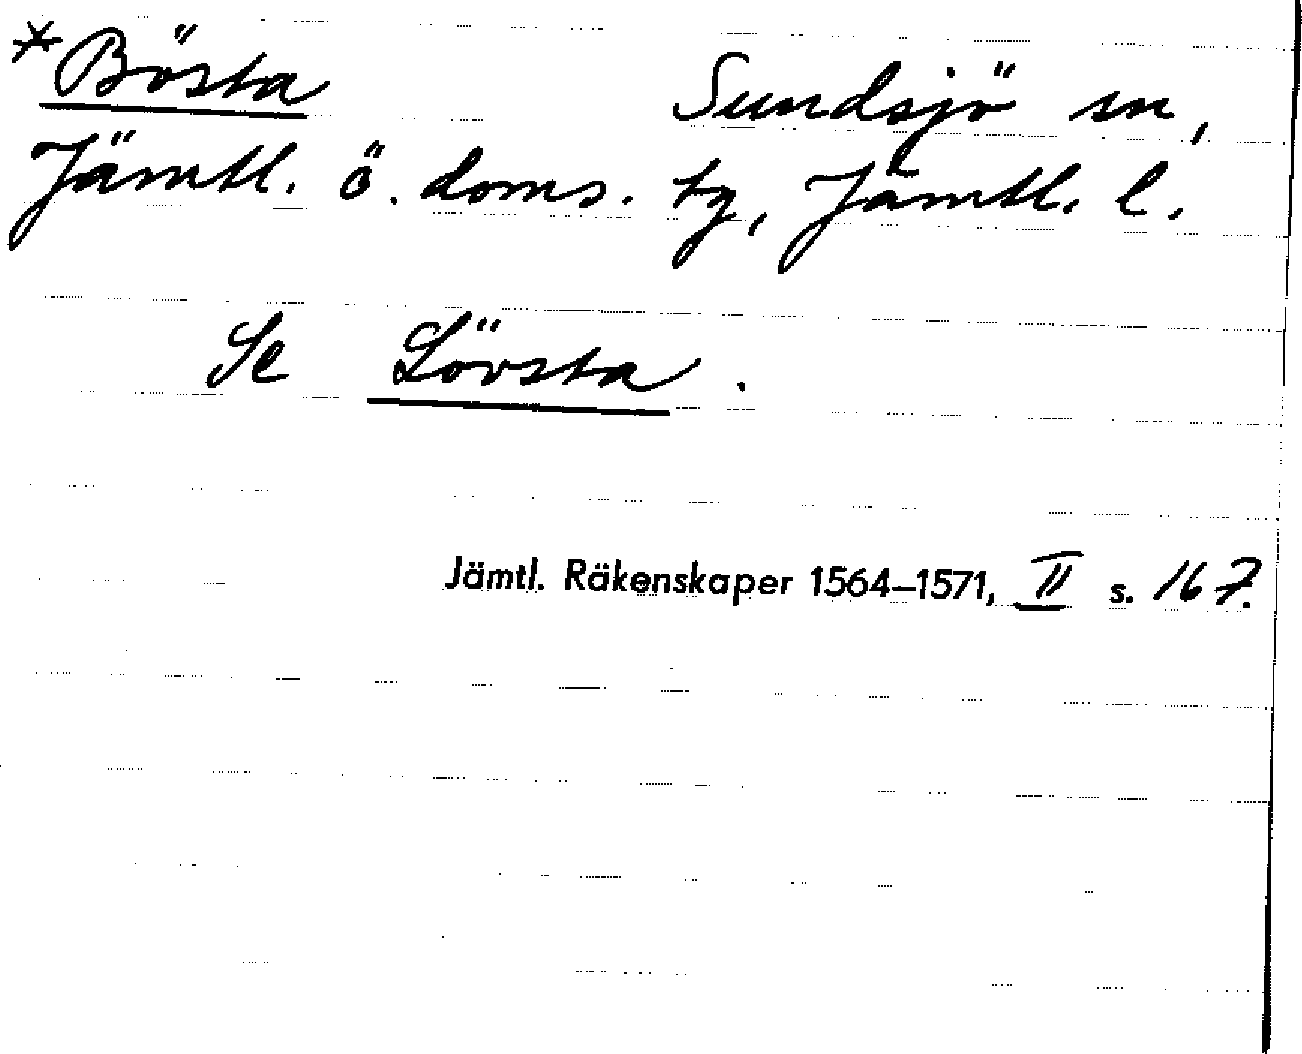 *Bösta Sundsjö sn,
Jämtl. ö. doms. tg, Jämtl. l.
Se Lövsta.
Jämtl. Räkenskaper 1564–1571, II s. 167.